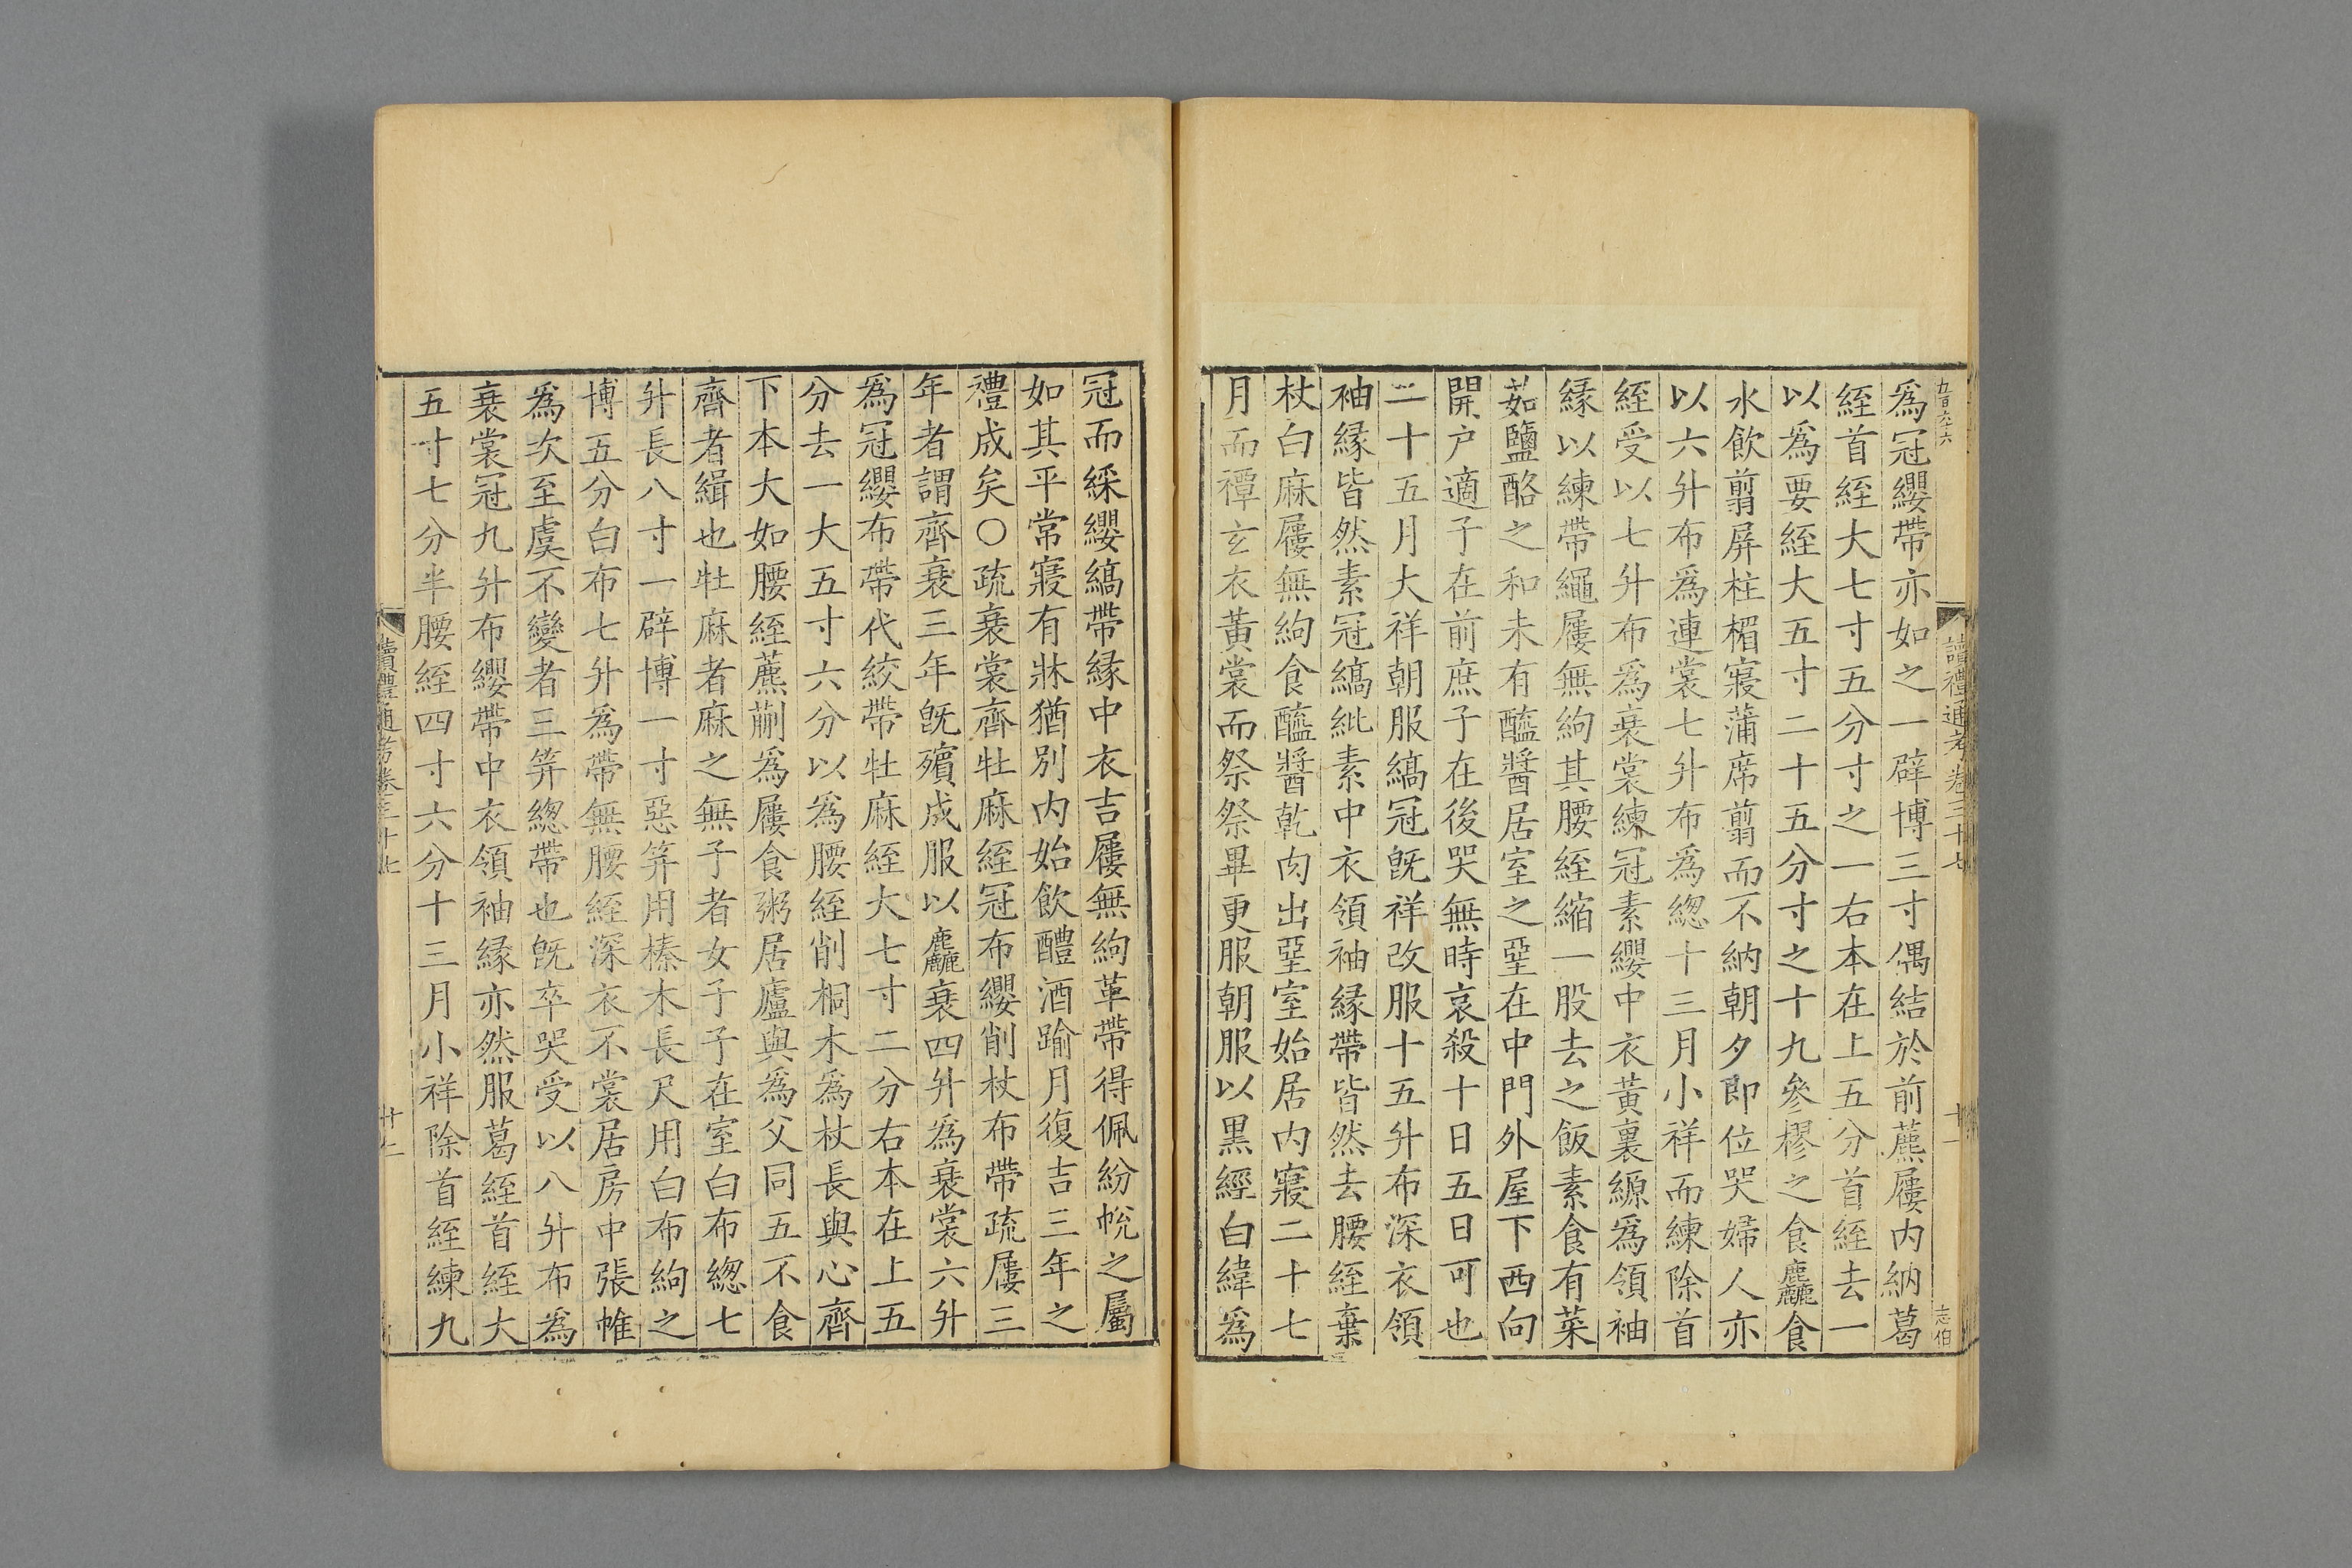 九百六十六
讀禮通考卷三十七
十一
志伯
爲冠纓帶亦如之一辟博三寸偶結於前藨屨内納葛
絰首絰大七寸五分寸之一右本在上五分首絰去一
以爲要絰大五寸二十五分寸之十九參樛之食麤食
水飲翦屏柱楣寢蒲席翦而不納朝夕即位哭婦人亦
以六升布爲連裳七升布爲緫十三月小祥而練除首
絰受以七升布爲衰裳練冠素纓中衣黄裏縓爲領袖
縁以練帶繩屨無絇其腰絰縮一股去之飯素食有菜
茹鹽酪之和未有醯醬居室之堊在中門外屋下西向
開户適子在前庶子在後哭無時哀殺十日五日可也
二十五月大祥朝服縞冠既祥改服十五升布深衣領
袖縁皆然素冠縞紕素中衣領袖縁帶皆然去腰絰棄
杖白麻屨無絇食醯醬乾肉出堊室始居内寢二十七
月而禫玄衣黄裳而祭祭畢更服朝服以黒經白緯爲
冠而綵纓縞帶縁中衣吉屨無絇革帶得佩紛帨之屬
如其平常寢有牀猶別内始飲醴酒踰月復吉三年之
禮成矣○疏衰裳齊牡麻絰冠布纓削杖布帶疏屨三
年者謂齊衰三年既殯成服以麤衰四升爲衰裳六升
爲冠纓布帶代絞帶牡麻絰大七寸二分右本在上五
分去一大五寸六分以爲腰絰削桐木爲杖長與心齊
下本大如腰絰藨蒯爲屨食粥居廬與爲父同五不食
齊者緝也牡麻者麻之無子者女子子在室白布緫七
升長八寸一辟博一寸惡笄用榛木長尺用白布絇之
博五分白布七升爲帶無腰絰深衣不裳居房中張帷
爲次至虞不變者三笄緫帶也既卒哭受以八升布爲
衰裳冠九升布纓帶中衣領袖縁亦然服葛絰首絰大
五寸七分半腰絰四寸六分十三月小祥除首絰練九
讀禮通考卷三十七